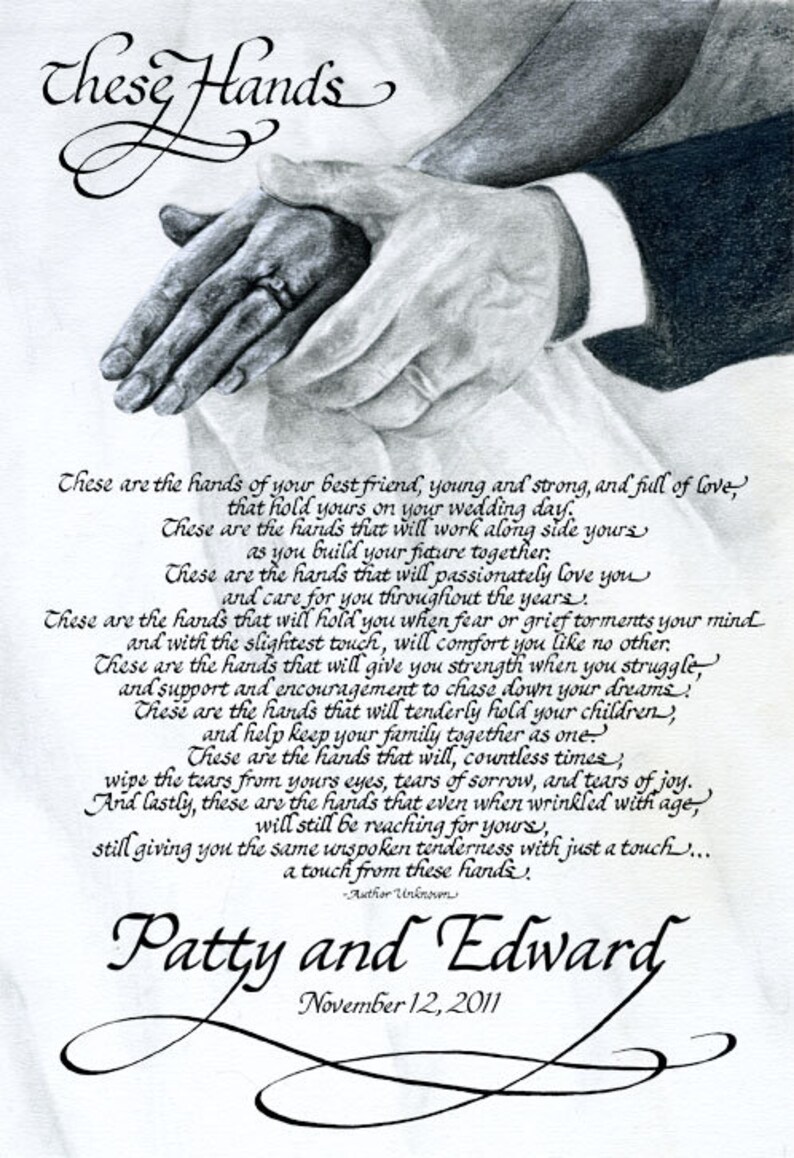 These Hands
These are the hands of your best friend, young and strong, and full of love,
that hold yours on your wedding day.
These are the hands that will work along side yours
as you build your future together.
These are the hands that will passionately love you
and care for you throughout the years.
These are the hands that will hold you when fear or grief torments your mind
and with the slightest touch, will comfort you like no other.
These are the hands that will give you strength when you struggle,
and support and encouragement to chase down your dreams.
These are the hands that will tenderly hold your children,
and help keep your family together as one.
These are the hands that will, countless times,
wipe the tears from yours eyes, tears of sorrow, and tears of joy.
And lastly, these are the hands that even when wrinkled with age,
will still be reaching for yours,
still giving you the same unspoken tenderness with just a touch...
a touch from these hands.
-Author Unknown
Patty and Edward
November 12, 2011